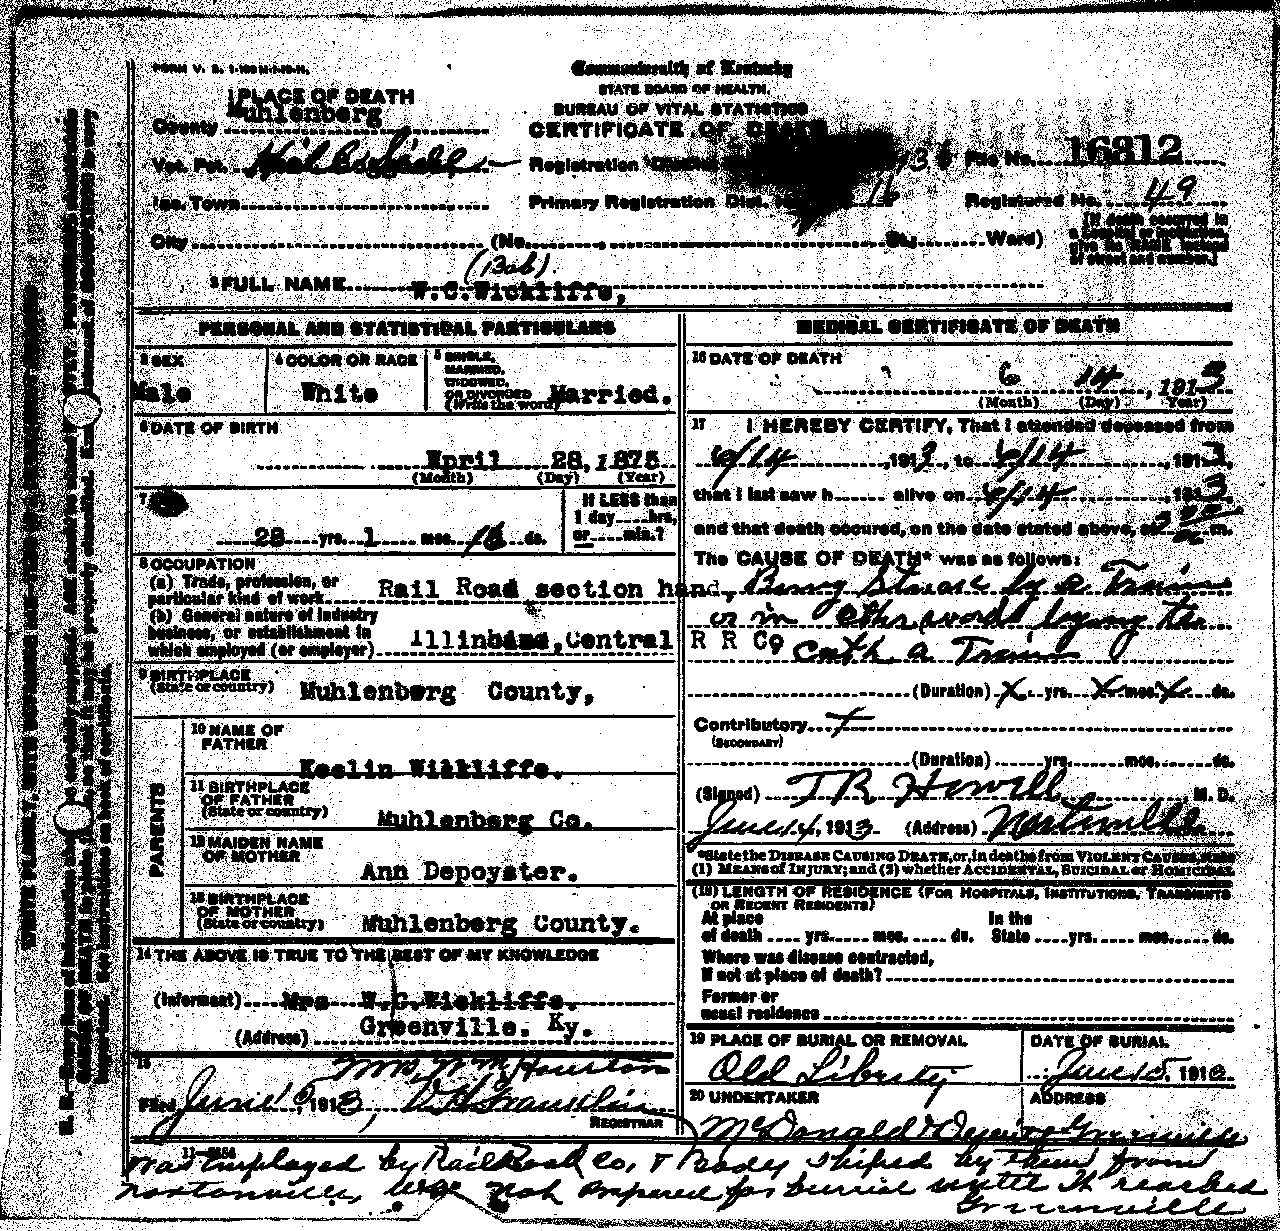 FORM V. S.
Commonwealth of Kentucky
STATE BOARD OF HEALTH.
BUREAU OF VITAL STATISTICS
CERTIFICATE OF DEATH
1 PLACE OF DEATH
County Muhlenberg
Vot. Pct. Hill Side
Inc. Town
City (No. , St.; Ward)
Registration
Primary Registration Dist.
File No. 16812
Registered No. 49
[If death occurred in a hospital or institution, give its NAME instead of street and number.]
(Bab)
2 FULL NAME W.C.Wickliffe,
PERSONAL AND STATISTICAL PARTICULARS
3 SEX
Male
4 COLOR OR RACE
White
5 SINGLE, MARRIED, WIDOWED, OR DIVORCED (Write the word)
Married.
6 DATE OF BIRTH
April 28, 1875
(Month) (Day) (Year)
7
28 yrs. 1 mos. 16 ds.
If LESS than 1 day hrs, or min.?
8 OCCUPATION
(a) Trade, profession, or particular kind of work Rail Road section hand,
(b) General nature of industry business, or establishment in which employed (or employer) Illinois,Central R R Co
9 BIRTHPLACE (State or country) Muhlenberg County,
PARENTS
10 NAME OF FATHER
Keelin Wikliffe.
11 BIRTHPLACE OF FATHER (State or country)
Muhlenberg Co.
12 MAIDEN NAME OF MOTHER
Ann Depoyster.
13 BIRTHPLACE OF MOTHER (State or country)
Muhlenberg County.
14 THE ABOVE IS TRUE TO THE BEST OF MY KNOWLEDGE
(Informant) Mrs W.C.Wickliffe.
(Address) Greenville. Ky.
15 Mrs Wm Houston
Filed June 15, 1913, W H Franklin
REGISTRAR
MEDICAL CERTIFICATE OF DEATH
16 DATE OF DEATH
6 14, 1913
(Month) (Day) Year)
17 I HEREBY CERTIFY, That I attended deceased from
6/14, 1913, to 6/14, 1913,
that I last saw h alive on 6/14, 1913,
and that death occured, on the date stated above, at m.
The CAUSE OF DEATH* was as follows:
Being Struck by a Train
or in other words
cath. a Train
(Duration) X yrs. X mos. X ds.
Contributory
(SECONDARY)
(Duration) yrs. mos. ds.
(Signed) T R Howell, M. D.
June 14, 1913 (Address) Nortonville
*State the DISEASE CAUSING DEATH, or, in deaths from VIOLENT CAUSES, state
(1) MEANS of INJURY; and (2) whether ACCIDENTAL, SUICIDAL or HOMICIDAL
(18) LENGTH OF RESIDENCE (FOR HOSPITALS, INSTITUTIONS, TRANSIENTS
OR RECENT RESIDENTS)
At place In the
of death yrs. mos. ds. State yrs. mos. ds.
Where was disease contracted,
If not at place of death?
Former or
usual residence
19 PLACE OF BURIAL OR REMOVAL
Old Liberty
DATE OF BURIAL
June 15, 1913
20 UNDERTAKER
McDonald &
ADDRESS
Greenville
Was Employed by Rail Road Co, & Body shiped by them from
Nortonville, was not prepared for burrial untill it reached
Greenville